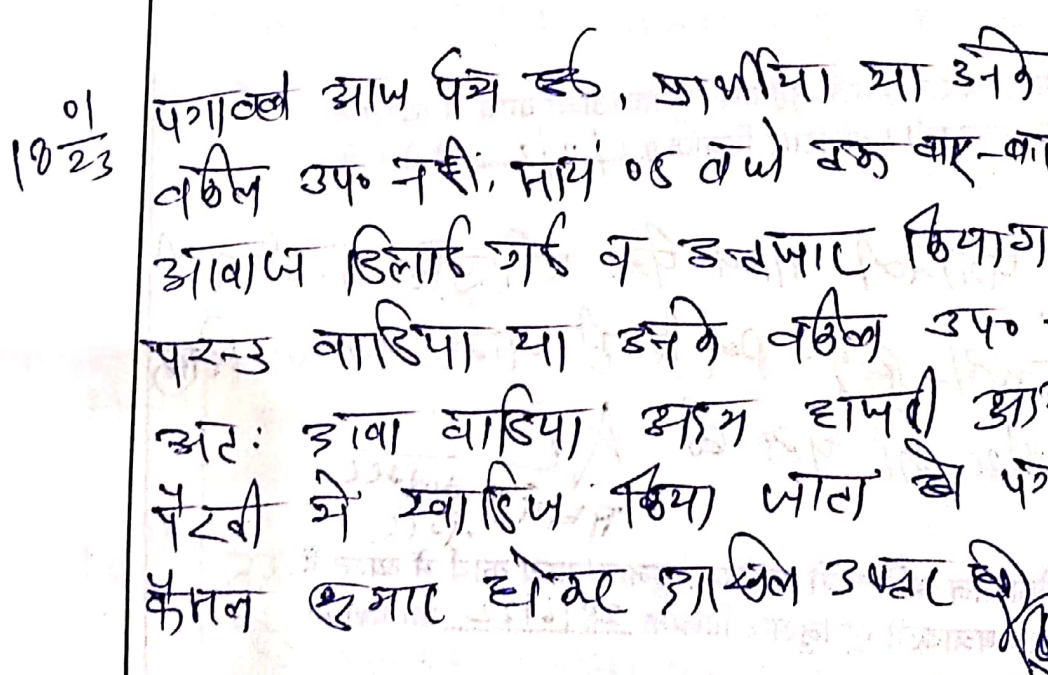 18 01/23
पत्रावली आज पेश हुई, प्रार्थीया या उनके
वकील उप० नहीं, सायं 05 बजे तक बार-बा
आवाज दिलाई गई व इन्तजार किया ग
परन्तु वादिया या उनके वकील उप०
अतः दावा वादिया अदम हाजरी अद
पैरवी में खारिज किया जाता है। पत्र
फैसल शुमार होकर दाखिल दफ्तर हो